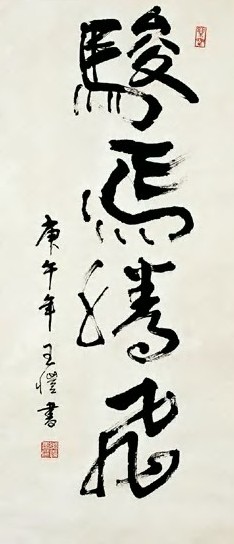 駿馬騰飛
庚午年王愷書